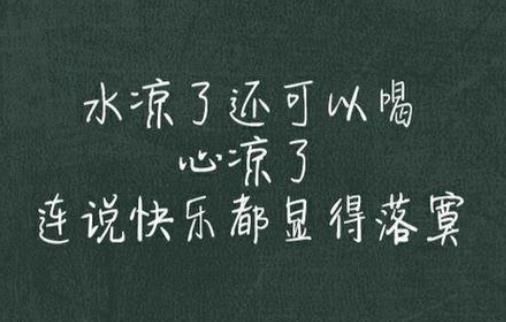 水凉了还可以喝
心凉了
连说快乐都显得落寞